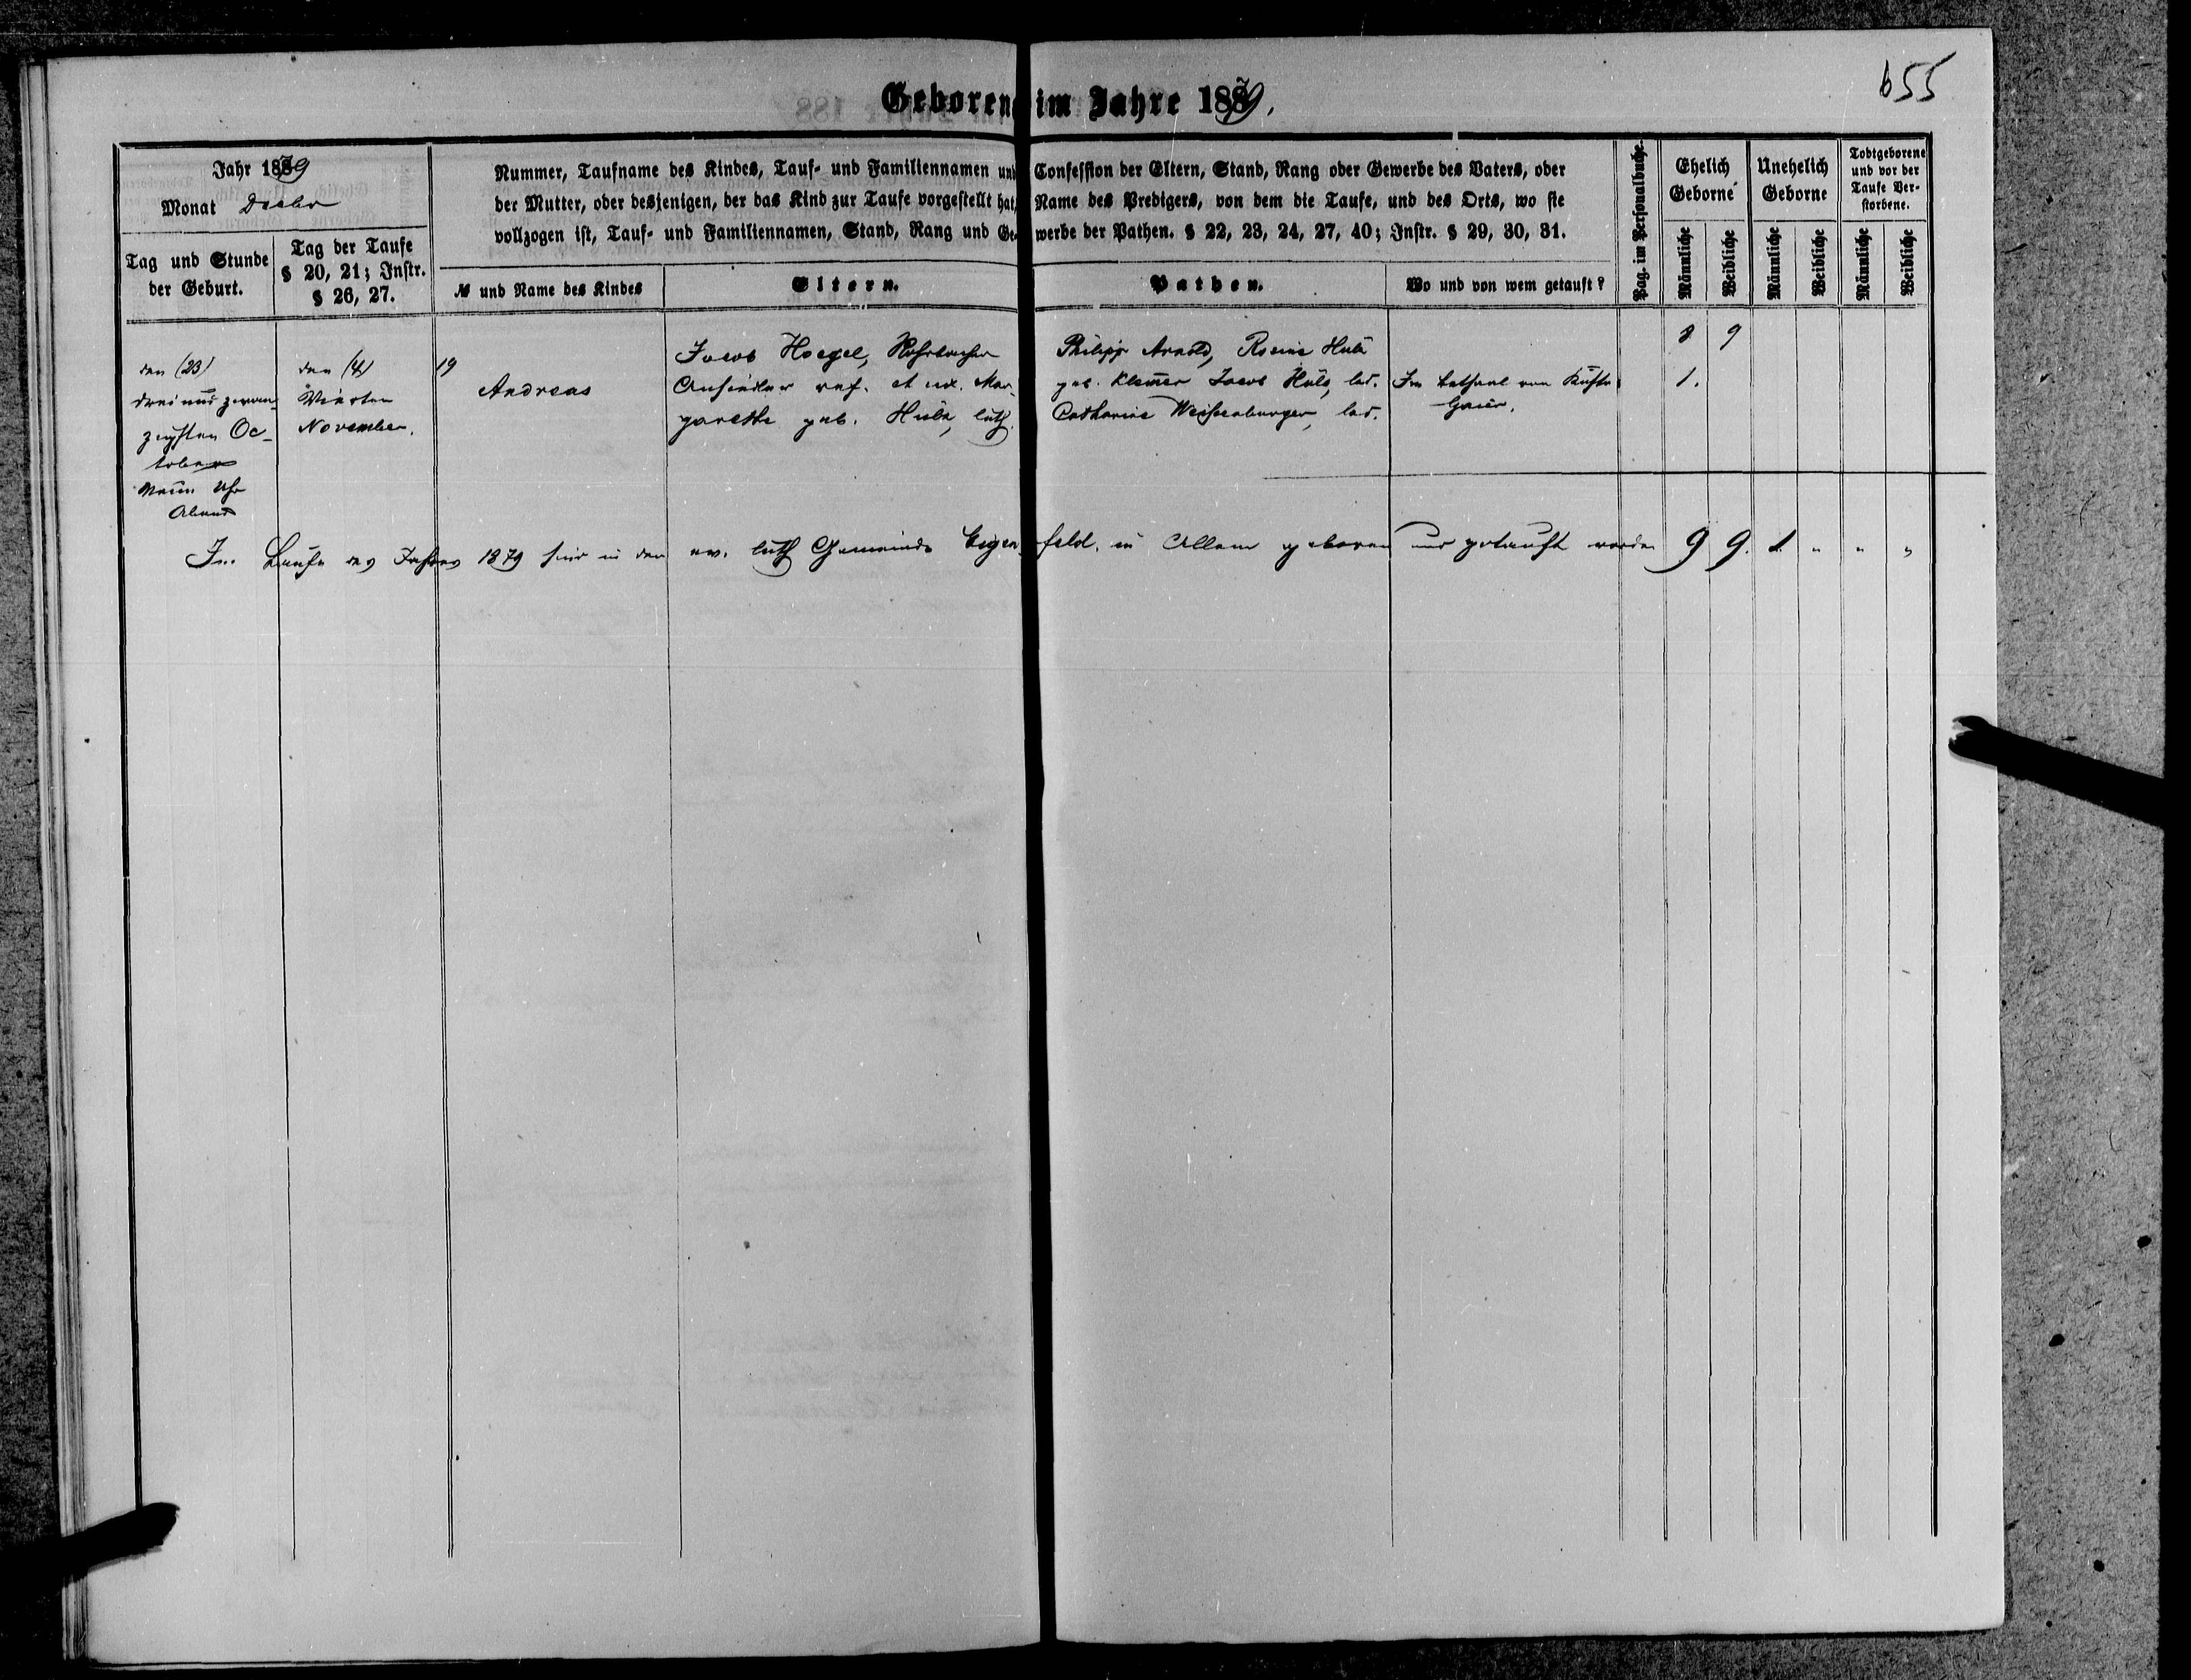 655
Geboren im Jahre 1879.
Jahr 1879
Monat Decbr
Tag und Stunde der Geburt.
Tag der Taufe § 20, 21; Instr. § 26, 27.
Nummer, Taufname des Kindes, Tauf- und Familiennamen und Confession der Eltern, Stand, Rang oder Gewerbe des Vaters, oder
der Mutter, oder desjenigen, der das Kind zur Taufe vorgestellt hat, Name des Predigers, von dem die Taufe, und des Orts, wo sie
vollzogen ist, Tauf- und Familiennamen, Stand, Rang und Gewerbe der Pathen. § 22, 23, 24, 27, 40; Instr. § 29, 30, 31.
№ und Name des Kindes
Eltern.
Pathen.
Wo und von wem getauft?
Pag. im Personalbuche.
Ehelich Geborne
Unehelich Geborne
Todtgeborene und vor der Taufe Verstorbene.
Männliche
Weibliche
Männliche
Weibliche
Männliche
Weibliche
8 9
den (23)
drei und zwan-
zigsten Oc-
tober
Neun Uhr
Abends
den (4)
Vierten
November.
19
Andreas
Jacob Hoegel, Rohrbacher
Ansiedler ref. et ux. Mar-
garetha geb. Hülz, luth.
Philipp Arnold, Rosine Hülz
geb. Klemer Jacob Hülz, led.
Catharine Weissenburger, led.
Im Bethaal von Küster
Gaier.
1.
Im Laufe des Jahres 1879 sind in der ev. luth Gemeinde Eigenfeld. in Allem geboren und getauft worden 9 9. 1. " " "